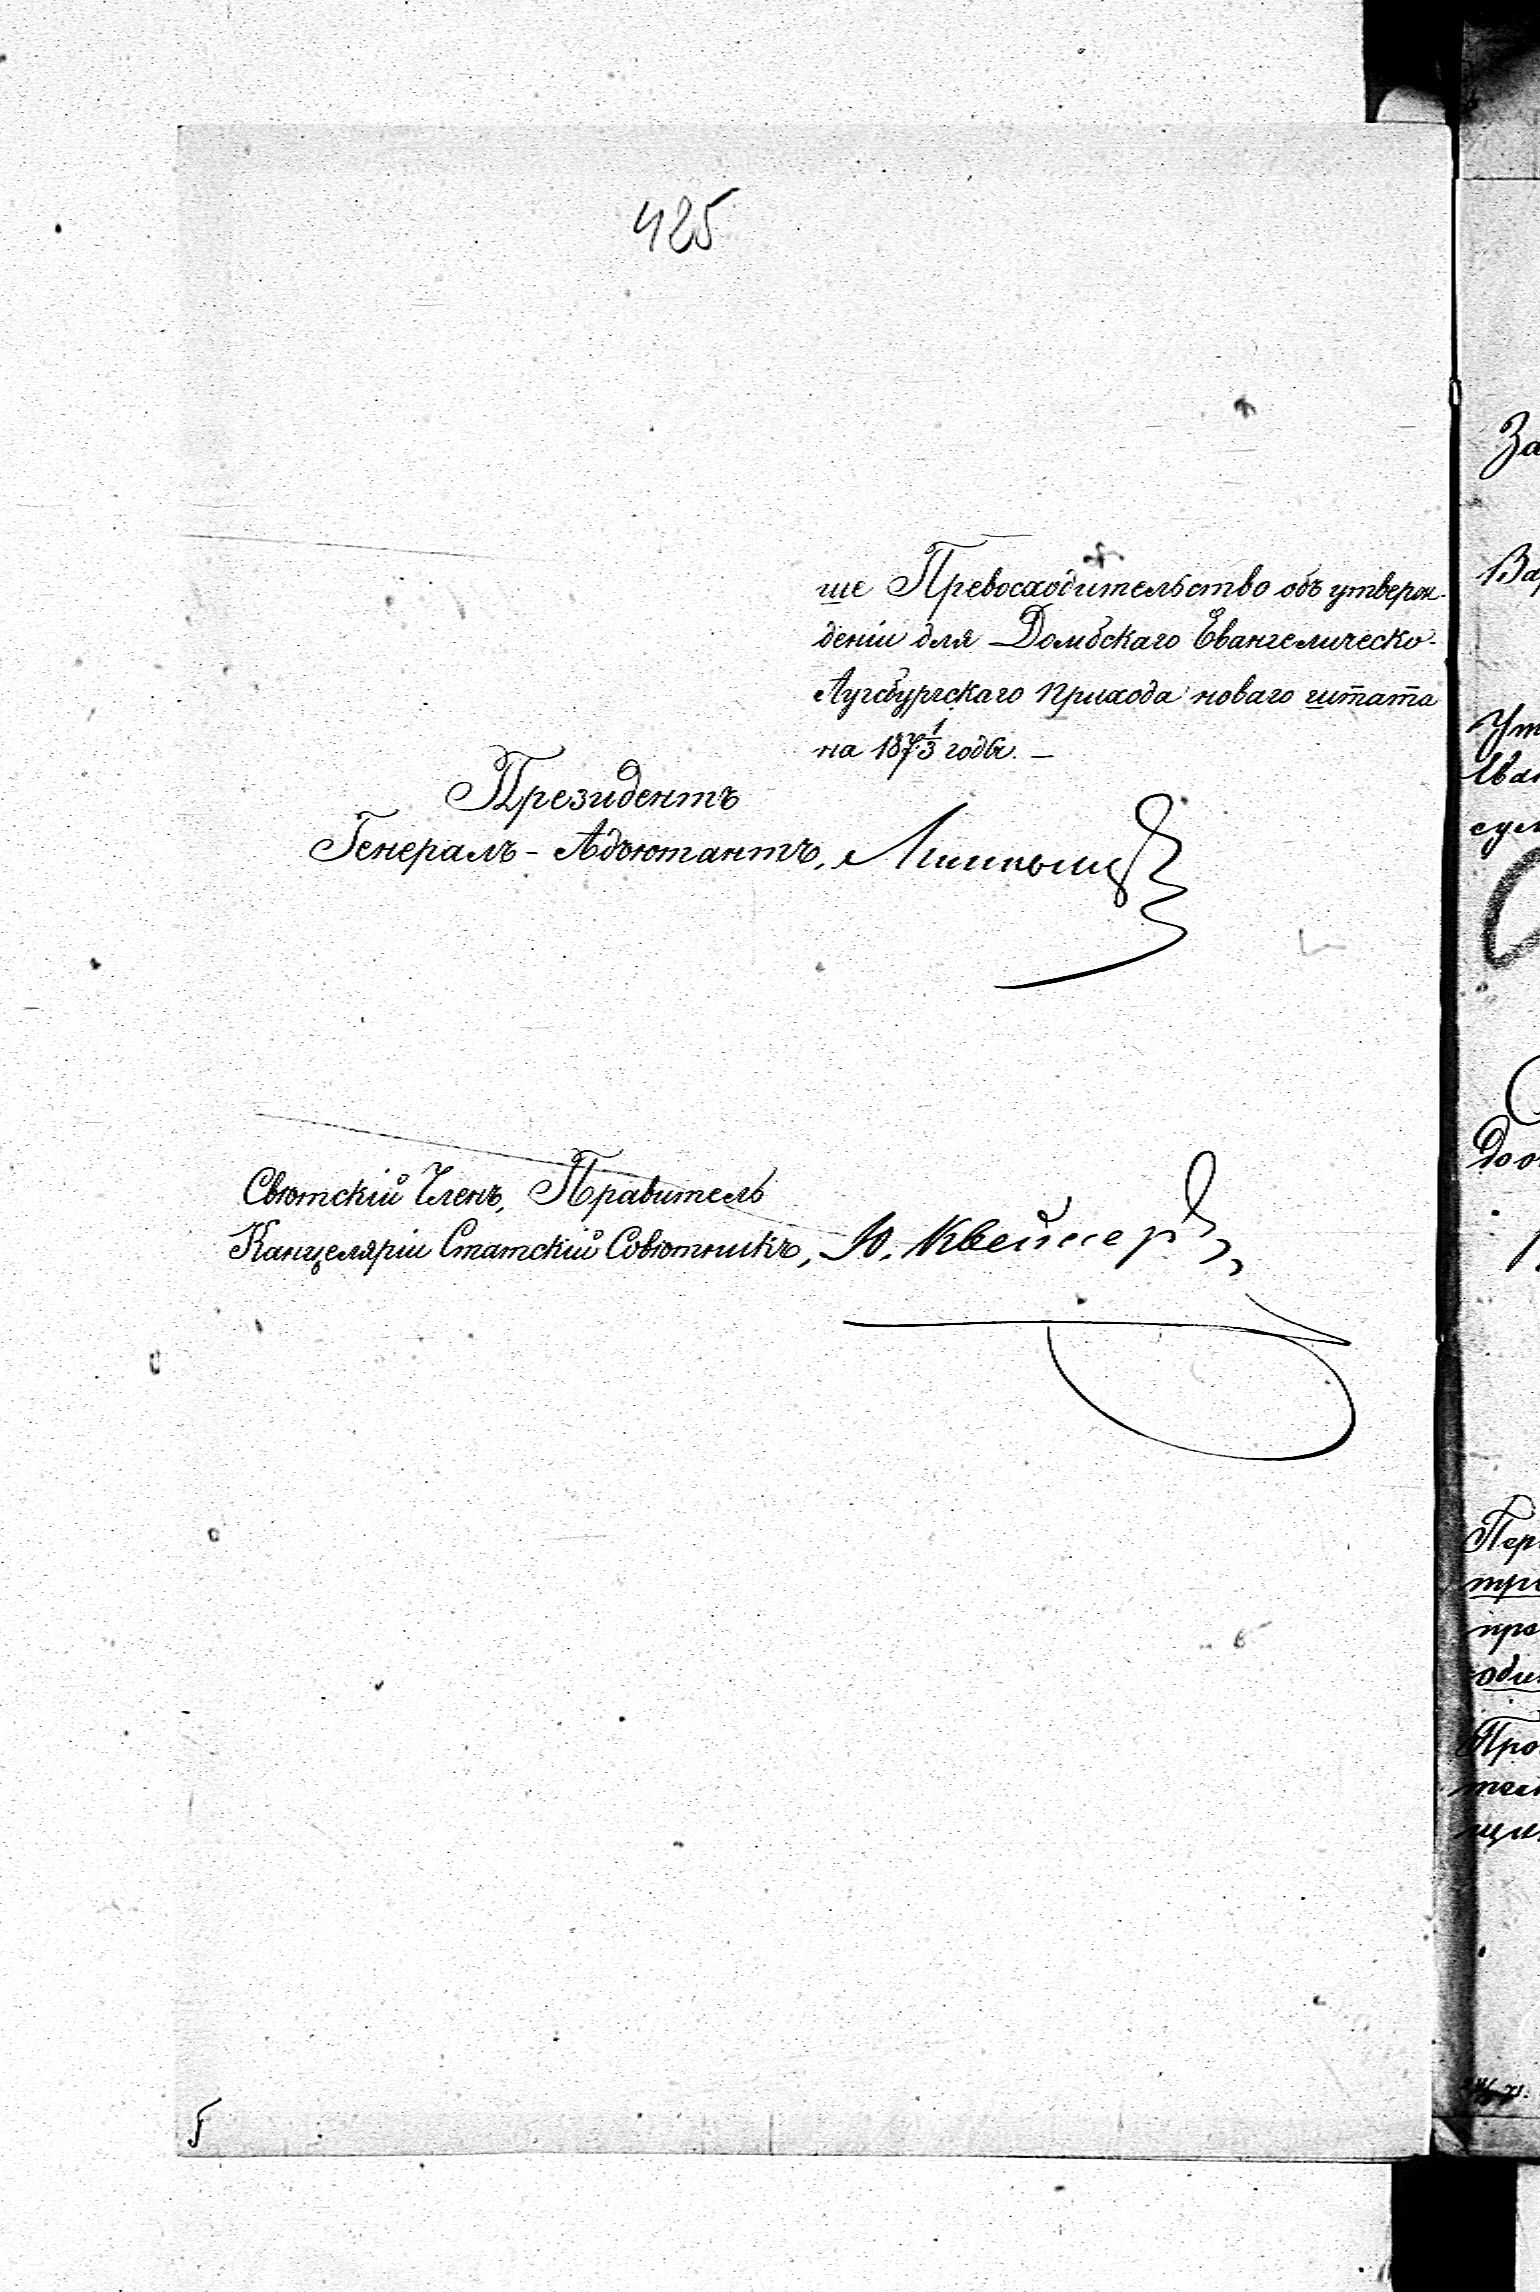 425
ше Превосходительство объ утверж-
деніи для Домбскаго Евангелическо-
Аугсбургскаго прихода новаго штата
на 187 1/3 годы. —
Президентъ
Генералъ-Адъютантъ,
Свѣтскій Членъ, Правитель
Канцеляріи Статскій Совѣтникъ, Ю.
За
Ва
Ут
суг
доо
Пер
тре
про
Про
тел